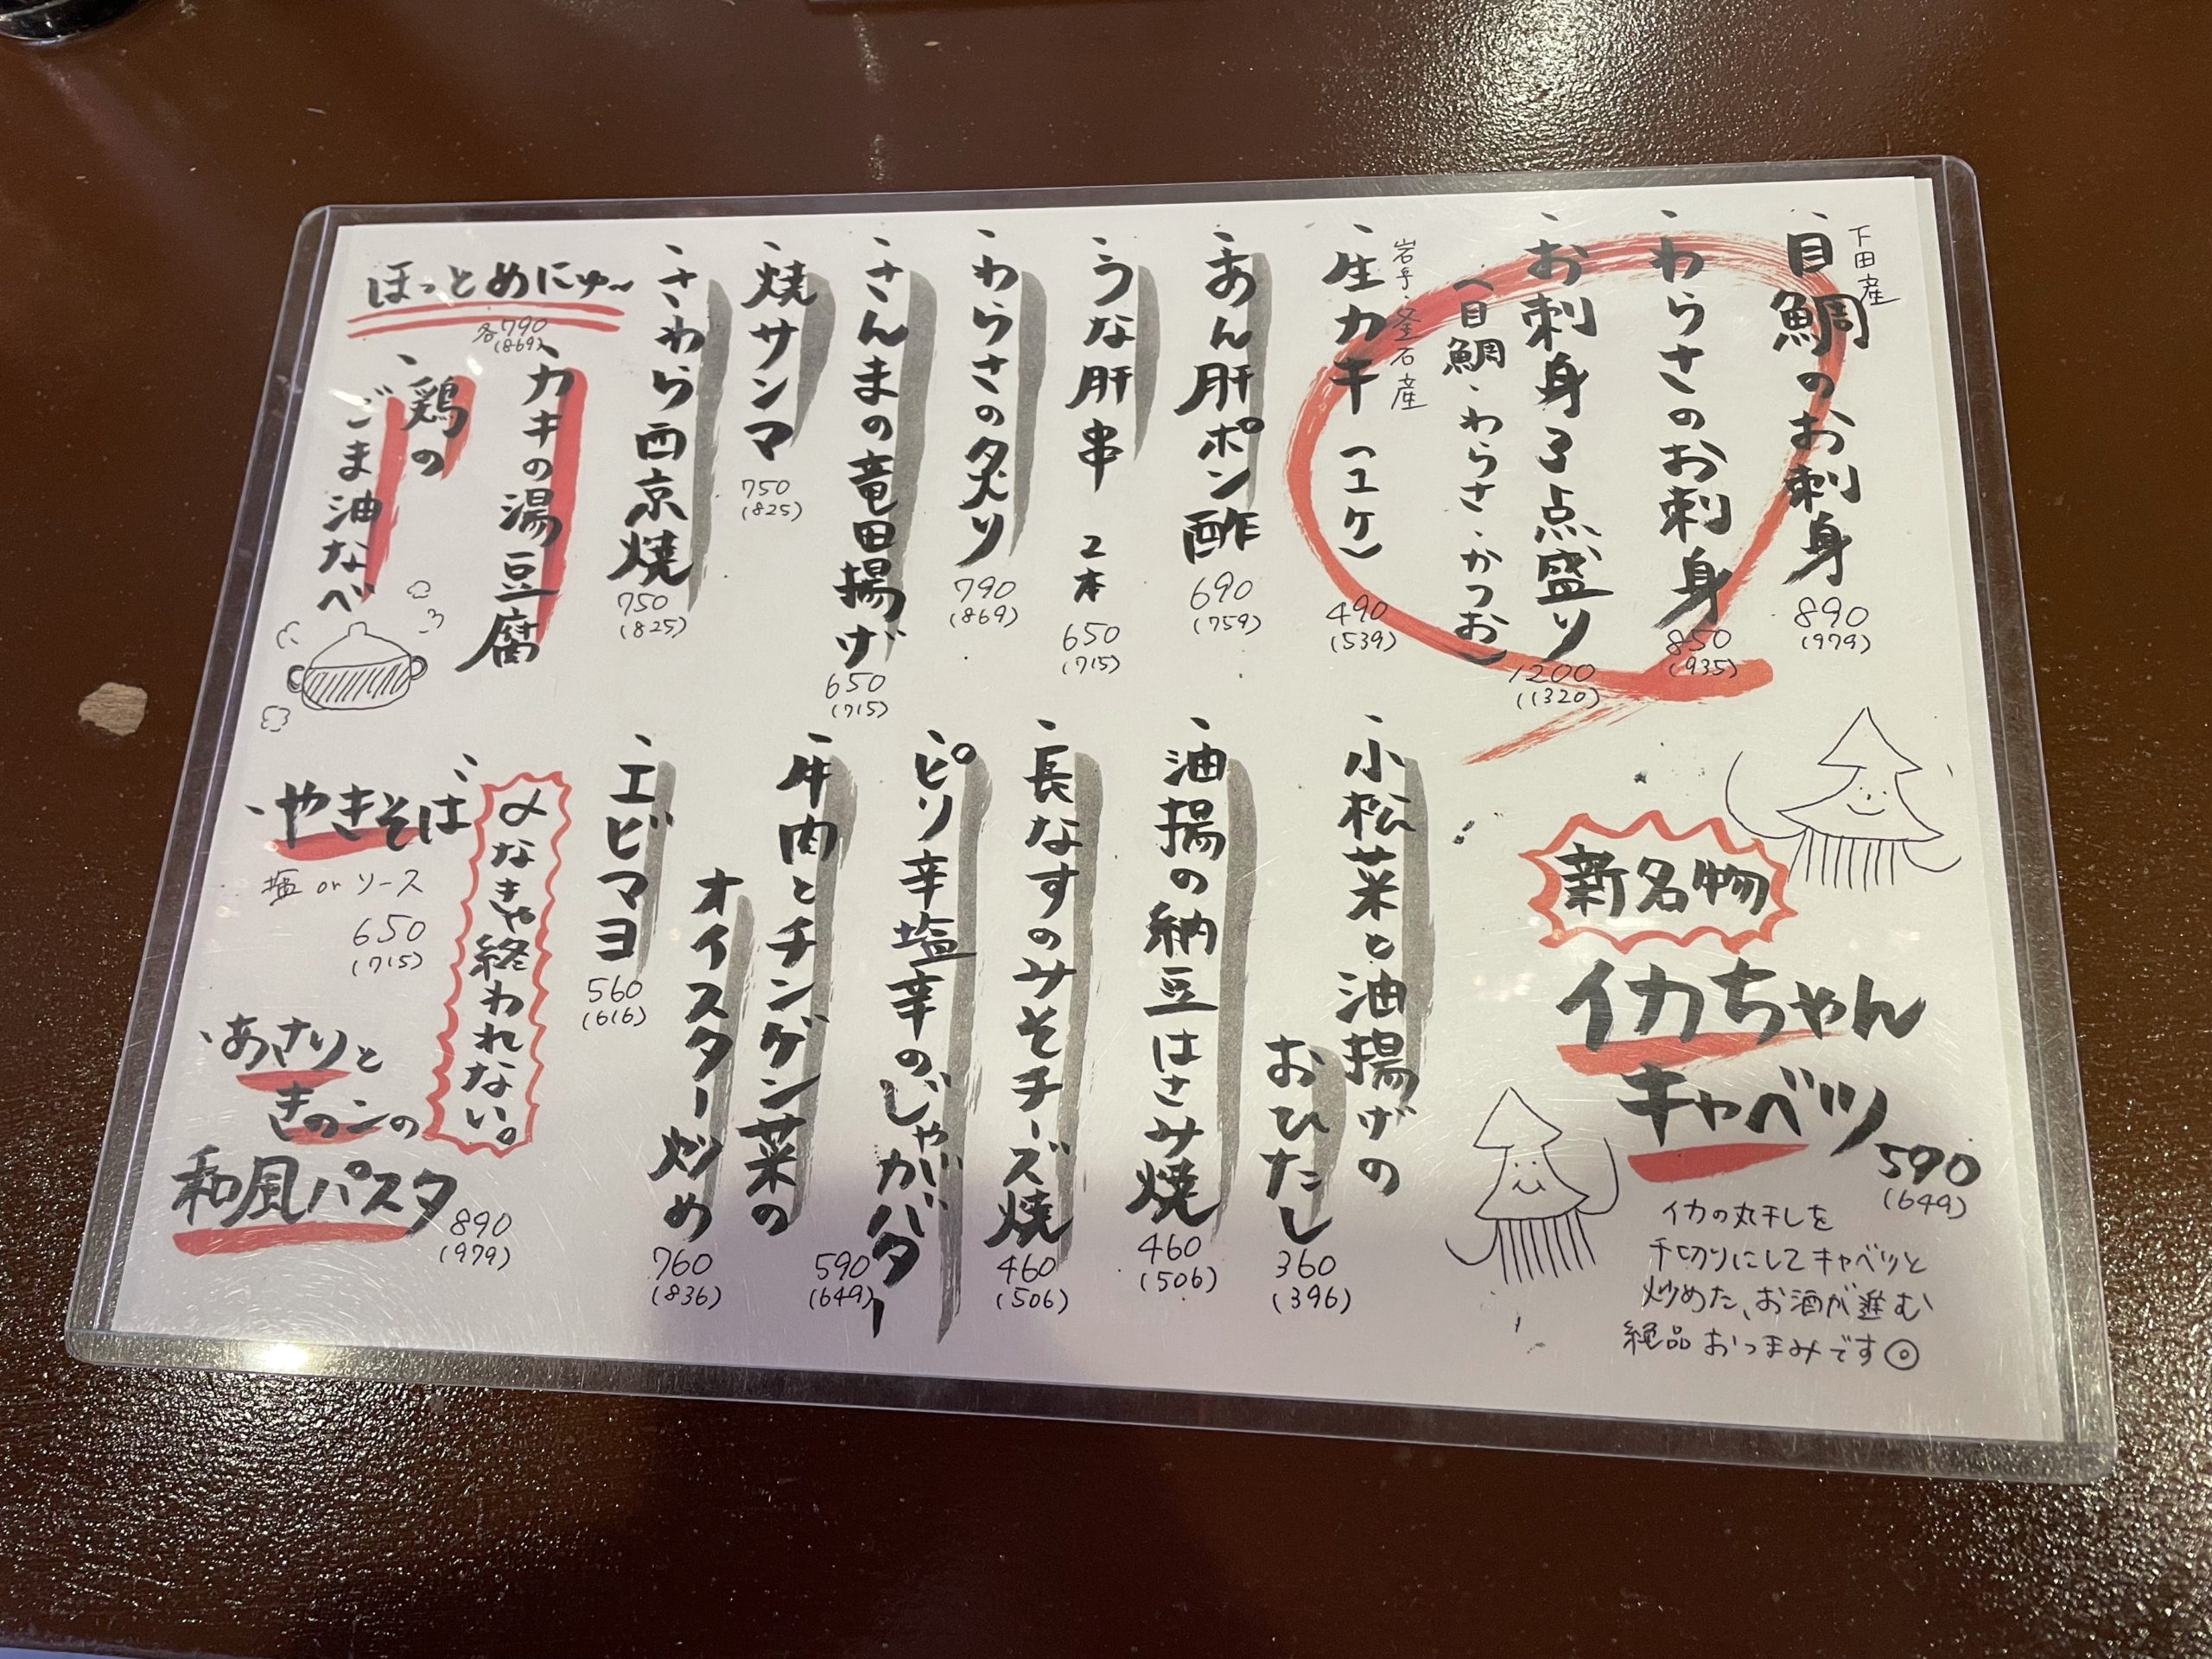 下田産
、目鯛のお刺身
890
(979)
、わらさのお刺身
850
(935)
、お刺身3点盛り
(目鯛・わらさ・かつお)
1200
(1320)
岩手・釜石産
、生カキ(1ケ)
490
(539)
、あん肝ポン酢
690
(759)
、うな肝串 2本
650
(715)
、わらさの炙り
790
(869)
、さんまの竜田揚げ
650
(715)
、焼サンマ
750
(825)
、さわら西京焼
750
(825)
ほっとめにゅ〜
各790
(869)
、カキの湯豆腐
、鶏の
ごま油なべ
新名物
イカちゃん
キャベツ
590
(649)
イカの丸干しを
千切りにしてキャベツと
炒めた、お酒が進む
絶品おつまみです◎
、小松菜と油揚げの
おひたし
360
(396)
、油揚の納豆はさみ焼
460
(506)
、長なすのみそチーズ焼
460
(506)
、ピリ辛塩辛のじゃがバター
590
(649)
、牛肉とチンゲン菜の
オイスター炒め
760
(836)
、エビマヨ
560
(616)
〆なきゃ終われない。
、やきそば
塩 or ソース
650
(715)
、あさりと
きのこの
和風パスタ
890
(979)